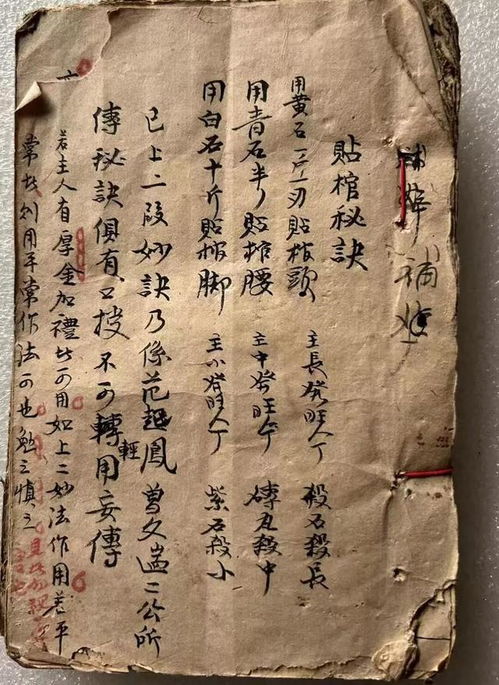 貼棺秘訣
用黃石一 刃貼棺頭 主長發旺人丁 殺石殺長
用青石半 貼棺腰 主中發旺人丁 磚瓦殺中
用白石十斤貼棺脚 主小發旺人丁 紫石殺小
已上二段妙訣乃係范越鳳曾文遄二公所
傳秘訣俱有口授不可轉輕用妄傳
若主人有厚金加禮此可用如上二妙法作用若平
常者则用平常作法可也勉之慎之